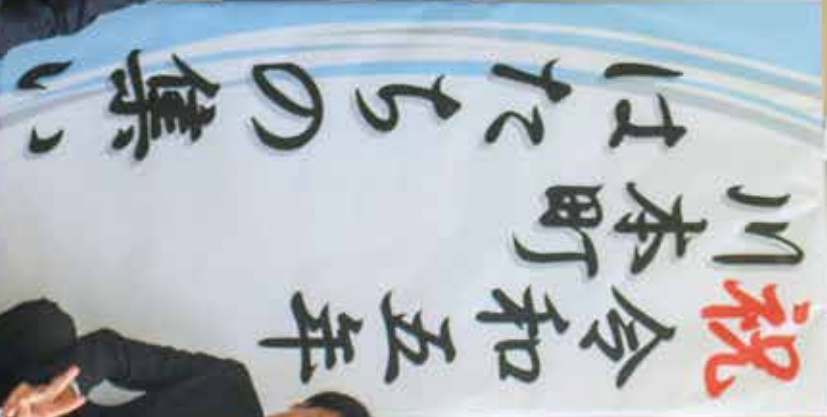 祝 令和五年
川本町
はたちの集い